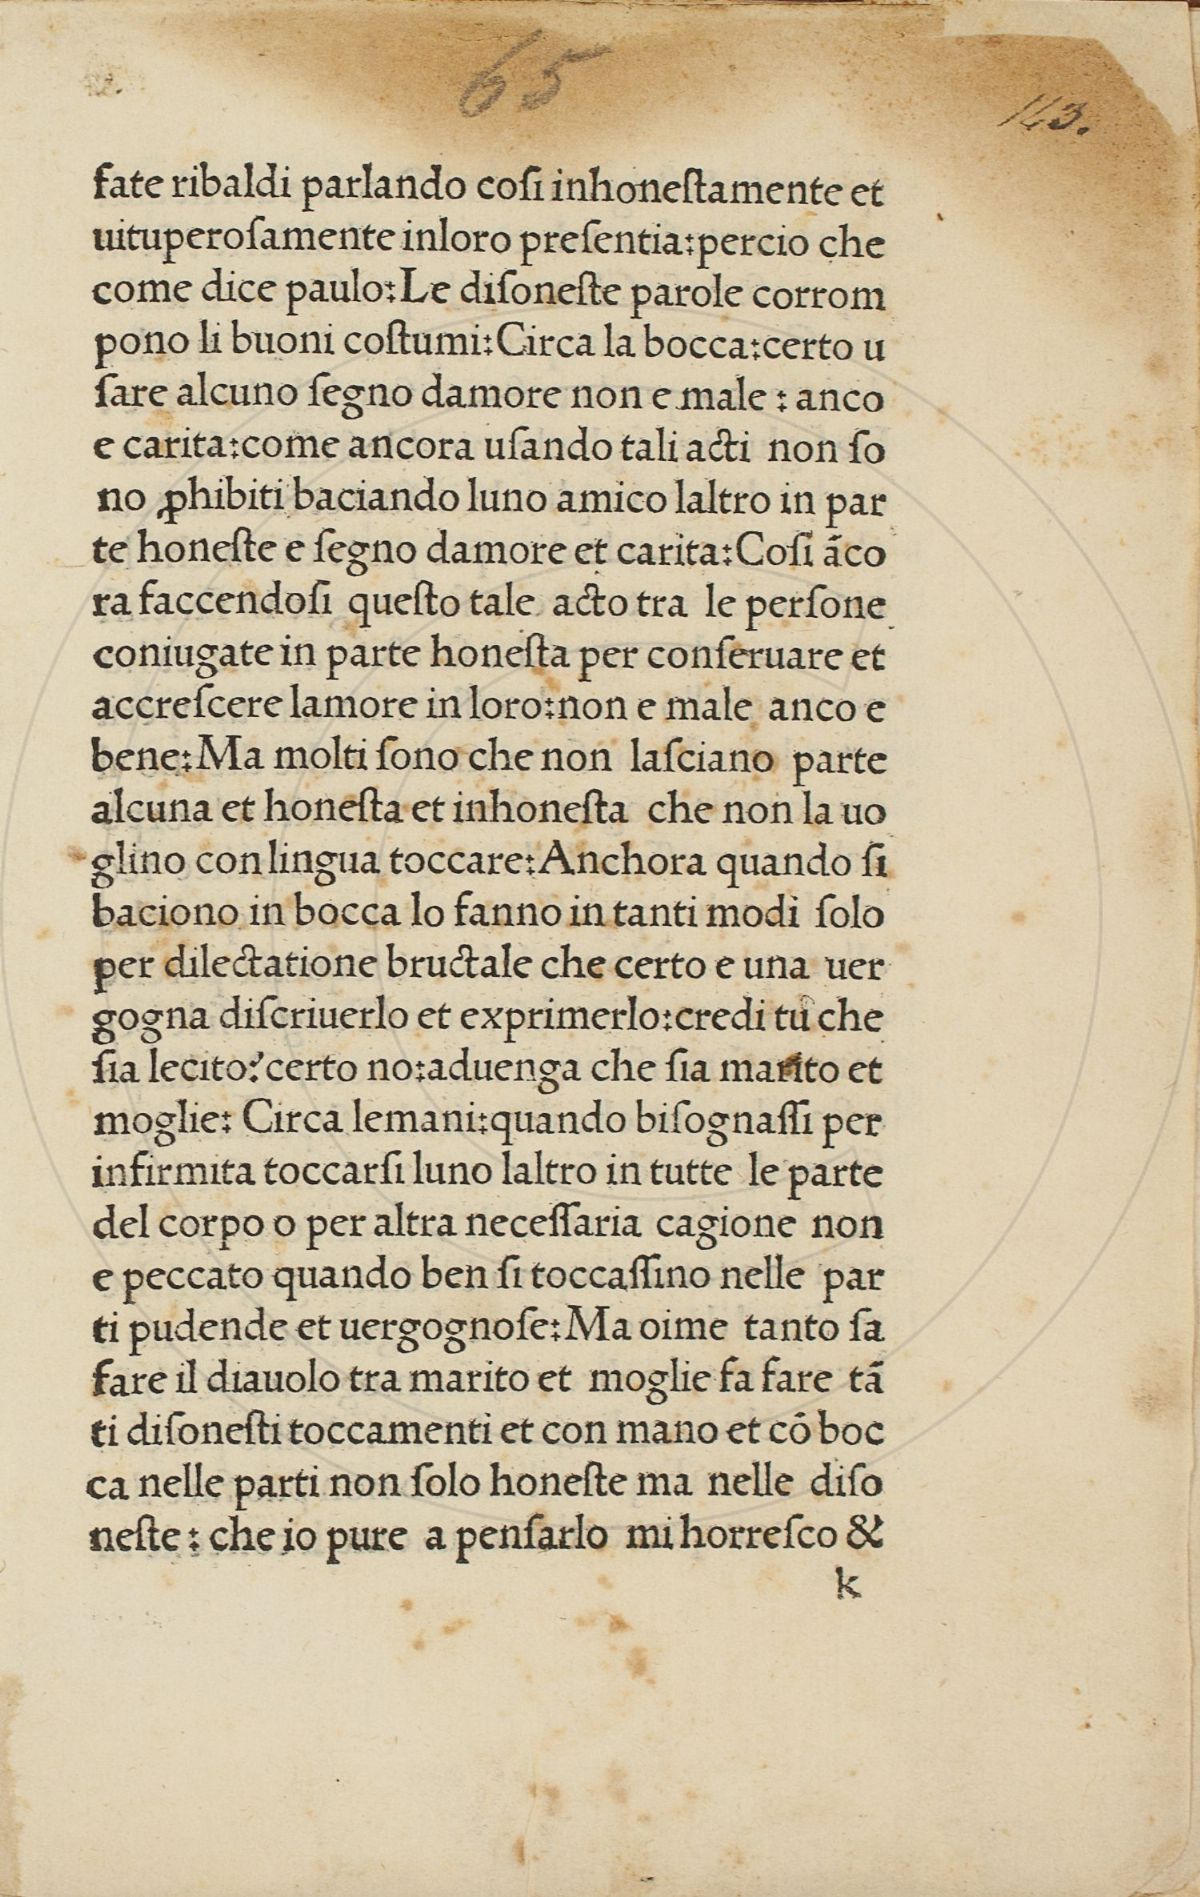 65
143.
fate ribaldi parlando coſi inhoneſtamente et
uituperoſamente inloro preſentia:percio che
come dice paulo:Le diſoneſte parole corrom
pono li buoni coſtumi:Circa la bocca:certo u
ſare alcuno ſegno damore non e male : anco
e carita:come ancora uſando tali acti non ſo
no ꝓhibiti baciando luno amico laltro in par
te honeſte e ſegno damore et carita:Coſi āco
ra faccendoſi queſto tale acto tra le perſone
coniugate in parte honeſta per conſeruare et
accreſcere lamore in loro:non e male anco e
bene:Ma molti ſono che non laſciano parte
alcuna et honeſta et inhoneſta che non la uo
glino con lingua toccare:Anchora quando ſi
baciono in bocca lo fanno in tanti modi ſolo
per dilectatione bructale che certo e una uer
gogna diſcriuerlo et exprimerlo:credi tu che
ſia lecito?certo no:aduenga che ſia marito et
moglie: Circa lemani:quando biſognaſſi per
infirmita toccarſi luno laltro in tutte le parte
del corpo o per altra neceſſaria cagione non
e peccato quando ben ſi toccaſſino nelle par
ti pudende et uergognoſe:Ma oime tanto ſa
fare il diauolo tra marito et moglie fa fare tā
ti diſoneſti toccamenti et con mano et cō boc
ca nelle parti non ſolo honeſte ma nelle diſo
neſte : che io pure a penſarlo mi horreſco &
k